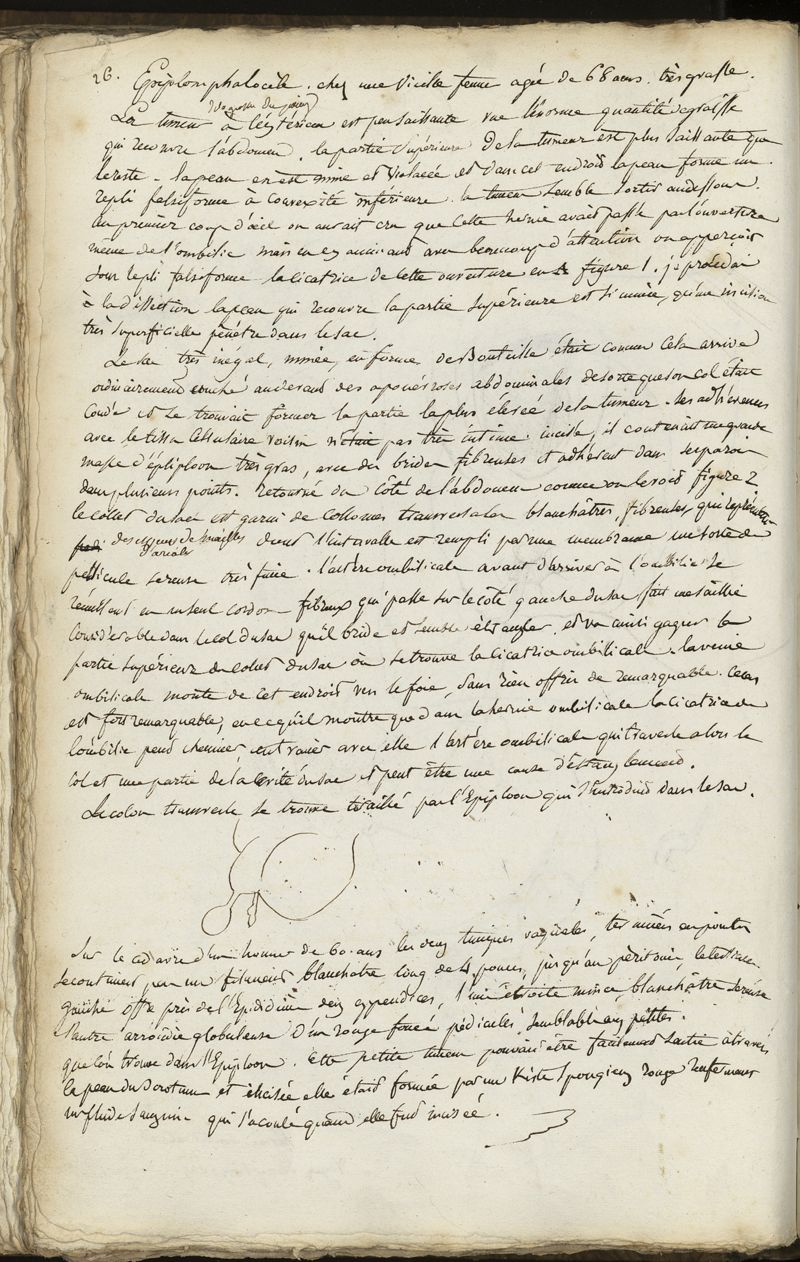 26. Epiplomphalocèle. chez une vieille femme agée de 68 ans. très grasse.
La tumeur à l'éxtérieur est peu saillante vue l'énorme quantité de graisse
qui recouvre l'abdomen. la partie supérieure de la tumeur est plus saillante que
le reste. la peau en est mince et violacée et dans cet endroit la peau forme un
repli falciforme à convexité inférieure. la tumeur semble sortir au dessous.
au premier coup d'œil on aurait cru que cette hernie avait passé par l'ouverture
même de l'ombilic mais en examinant avec beaucoup d'attention on apperçoit
sous repli falsiforme la cicatrice de cette ouverture en figure 1. je procédai
à la dissection la peau qui recouvre la partie supérieure est si mince, qu'une incision
très superficielle pénètre dans le sac.
Le sac très inegal, mince, en forme de Bouteille était comme cela arrive
ordinairement couché au devant des aponévroses abdominales de sorte que son col était
coudé et se trouvait former la partie la plus élevée de la tumeur. ses adhérences
avec le tissu cellulaire voisin n'était pas très intime. incisé, il contenait une grande
masse d'épiploon très gras, avec des brides fibreuses et adhérent dans ses parois
dans plusieurs points. retourné du côté de l'abdomen comme on le voit figure 2
le collet du sac est garni de colonnes transversales blanchâtres, fibreuses, qui
des espèces de mailles dont l'intervalle est rempli par une membrane une sorte de
d'aréoles
pellicule sereuse très fine. l'artère ombilicale avant d'arriver à l'ombilic se
réunissant en un seul cordon fibreux qui passe sur le côté gauche du sac fait une saillie
considérable dans le col du sac qu'il bride et semble étrangler, et va ainsi gagner la
partie supérieure du collet du sac où se trouve la cicatrice ombilicale. la veine
ombilicale monte de cet endroit vers le foie, sans rien offrir de remarquable. Ce cas
est fort remarquable, en ce qu'il montre que dans la hernie ombilicale la cicatrice de
l'ombilic peut cheminer entrainer avec elle l'artère ombilicale qui traverse alors le
col et une partie de la cavité du sac et peut être une cause d'étranglement.
Le colon transverse se trouve tiraillé par l'Epiploon qui s'introduit dans le sac.
Sur le cadavre d'un homme de 60 ans les deux tuniques vaginales, terminées en pointe
se continuent par un filament blanchatre long de 4 pouces, jusqu'au péritoine, le testicule
gauche offre près de l'Epididime deux appendices, l'une étroite mince, blanchâtre sereuse
l'autre arrondie globuleuse d'un rouge foncé pédiculé, semblable aux petites
que l'on trouve dans l'Epiploon. cette petite tumeur pouvait être facilement sentie à travers
la peau du scrotum et incisée elle était formée par un Kiste spongieux rouge renfermant
un fluide sanguin qui s'écoula quand elle fut incisée.